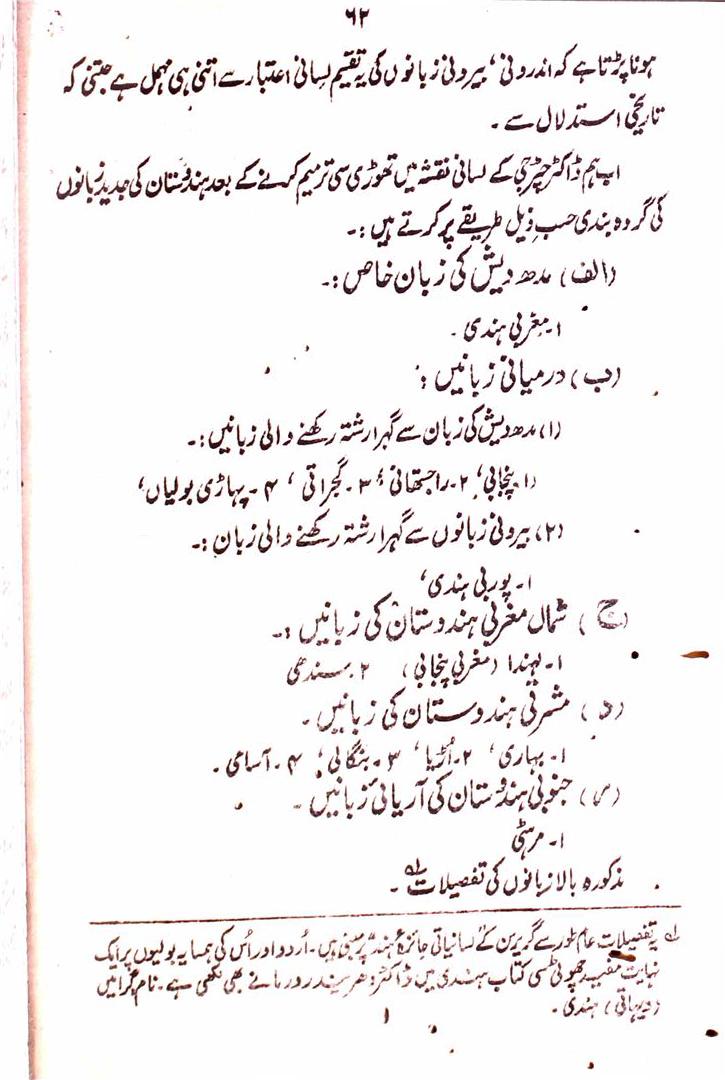 ۶۲
ہونا پڑتا ہے کہ اندرونی' بیرونی زبانوں کی یہ تقسیم لسانی اعتبار سے اتنی ہی مہمل ہے جتنی کہ
تاریخی استدلال سے ۔
اب ہم ڈاکٹر چٹرجی کے لسانی نقشہ میں تھوڑی سی ترمیم کرنے کے بعد ہندوستان کی جدید زبانوں
کی گروہ بندی حسب ذیل طریقے پر کرتے ہیں :۔
(الف) مدھ دیش کی زبان خاص :۔
۱۔ مغربی ہندی ۔
(ب) درمیانی زبانیں :
(۱) مدھ دیش کی زبان سے گہرا رشتہ رکھنے والی زبانیں :۔
۱۔ پنجابی' ۲۔ راجستھانی' ۳۔ گجراتی ' ۴۔ پہاڑی بولیاں'
(۲) بیرونی زبانوں سے گہرا رشتہ رکھنے والی زبان :۔
۱۔ پوربی ہندی'
(ج) شمال مغربی ہندوستان کی زبانیں :۔
۱۔ لہندا (مغربی پنجابی) ۲۔ سندھی
(د) مشرقی ہندوستان کی زبانیں ۔
۱۔ بہاری' ۲۔ اُڑیا' ۳۔ بنگالی' ۴۔ آسامی ۔
(س) جنوبی ہندوستان کی آریائی زبانیں ۔
۱۔ مرہٹی
مذکورہ بالا زبانوں کی تفصیلات لہ ۔
لہ یہ تفصیلات عام طور سے گریرسن کے لسانیاتی جائزۂ ہند پر مبنی ہیں ۔ اُردو اور اُس کی ہمسایہ بولیوں پر ایک
نہایت مفید چھوٹی سی کتاب ہندی میں ڈاکٹر دھریندر ورما نے بھی لکھی ہے ۔ نام گرامین
(دیہاتی) ہندی ۔